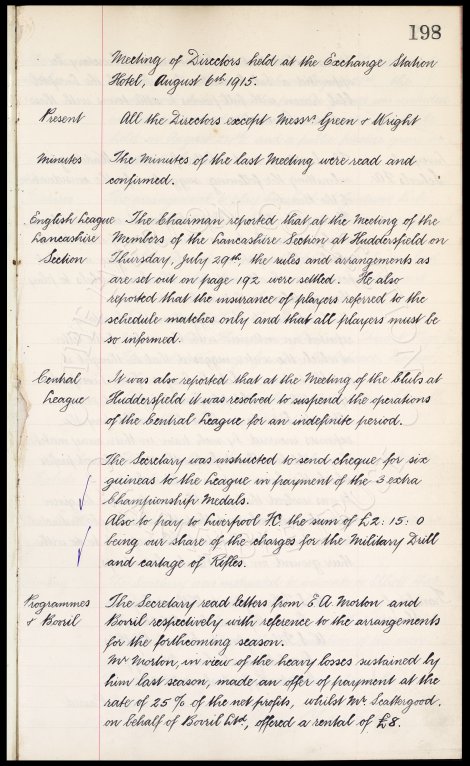 198
Meeting of Directors held at the Exchange Station
Hotel, August 6th 1915.
Present All the Directors except Messrs. Green & Wright
Minutes The Minutes of the last Meeting were read and
confirmed.
English League The Chairman reported that at the Meeting of the
Lancashire Members of the Lancashire Section at Huddersfield on
Section Thursday, July 29th, the rules and arrangements as
are set out on page 192 were settled. He also
reported that the insurance of players referred to the
schedule matches only and that all players must be
so informed.
Central It was also reported that at the Meeting of the Clubs at
League Huddersfield it was resolved to suspend the operations
of the Central League for an indefinite period.
The Secretary was instructed to send cheque for six
guineas to the League in payment of the 3 extra
Championship Medals.
Also to pay to Liverpool F.C. the sum of £2: 15: 0
being our share of the charges for the Military Drill
and cartage of Rifles.
Programmes The Secretary read letters from E A Morton and
& Bovril Bovril respectively with reference to the arrangements
for the forthcoming season.
Mr Morton, in view of the heavy losses sustained by
him last season, made an offer of payment at the
rate of 25% of the net profits, whilst Mr Scattergood,
on behalf of Bovril Ltd, offered a rental of £8.